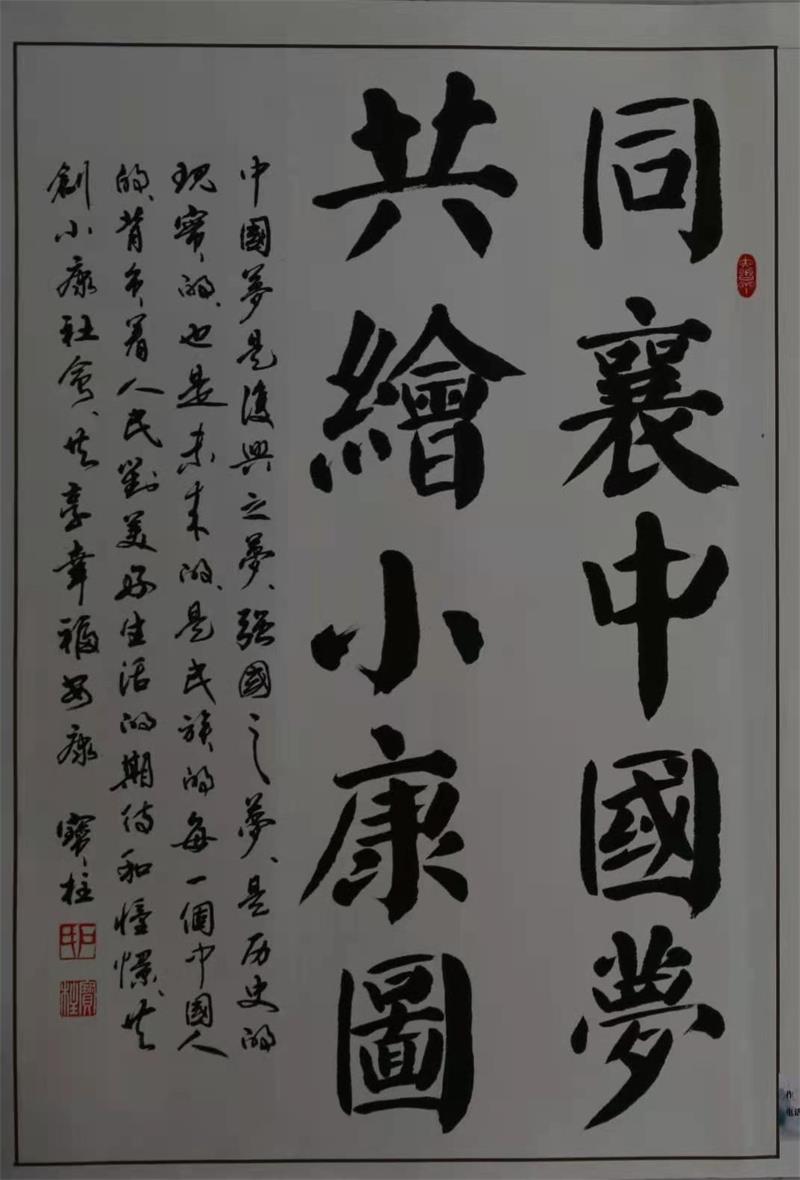 同襄中國夢
共繪小康圖
中國夢是復興之夢、强國之夢、是历史的
现實的、也是未来的、是民族的每一個中國人
的、背负着人民對美好生活的期待和憧憬、共
創小康社會、共享幸福安康 寳柱
作
电话